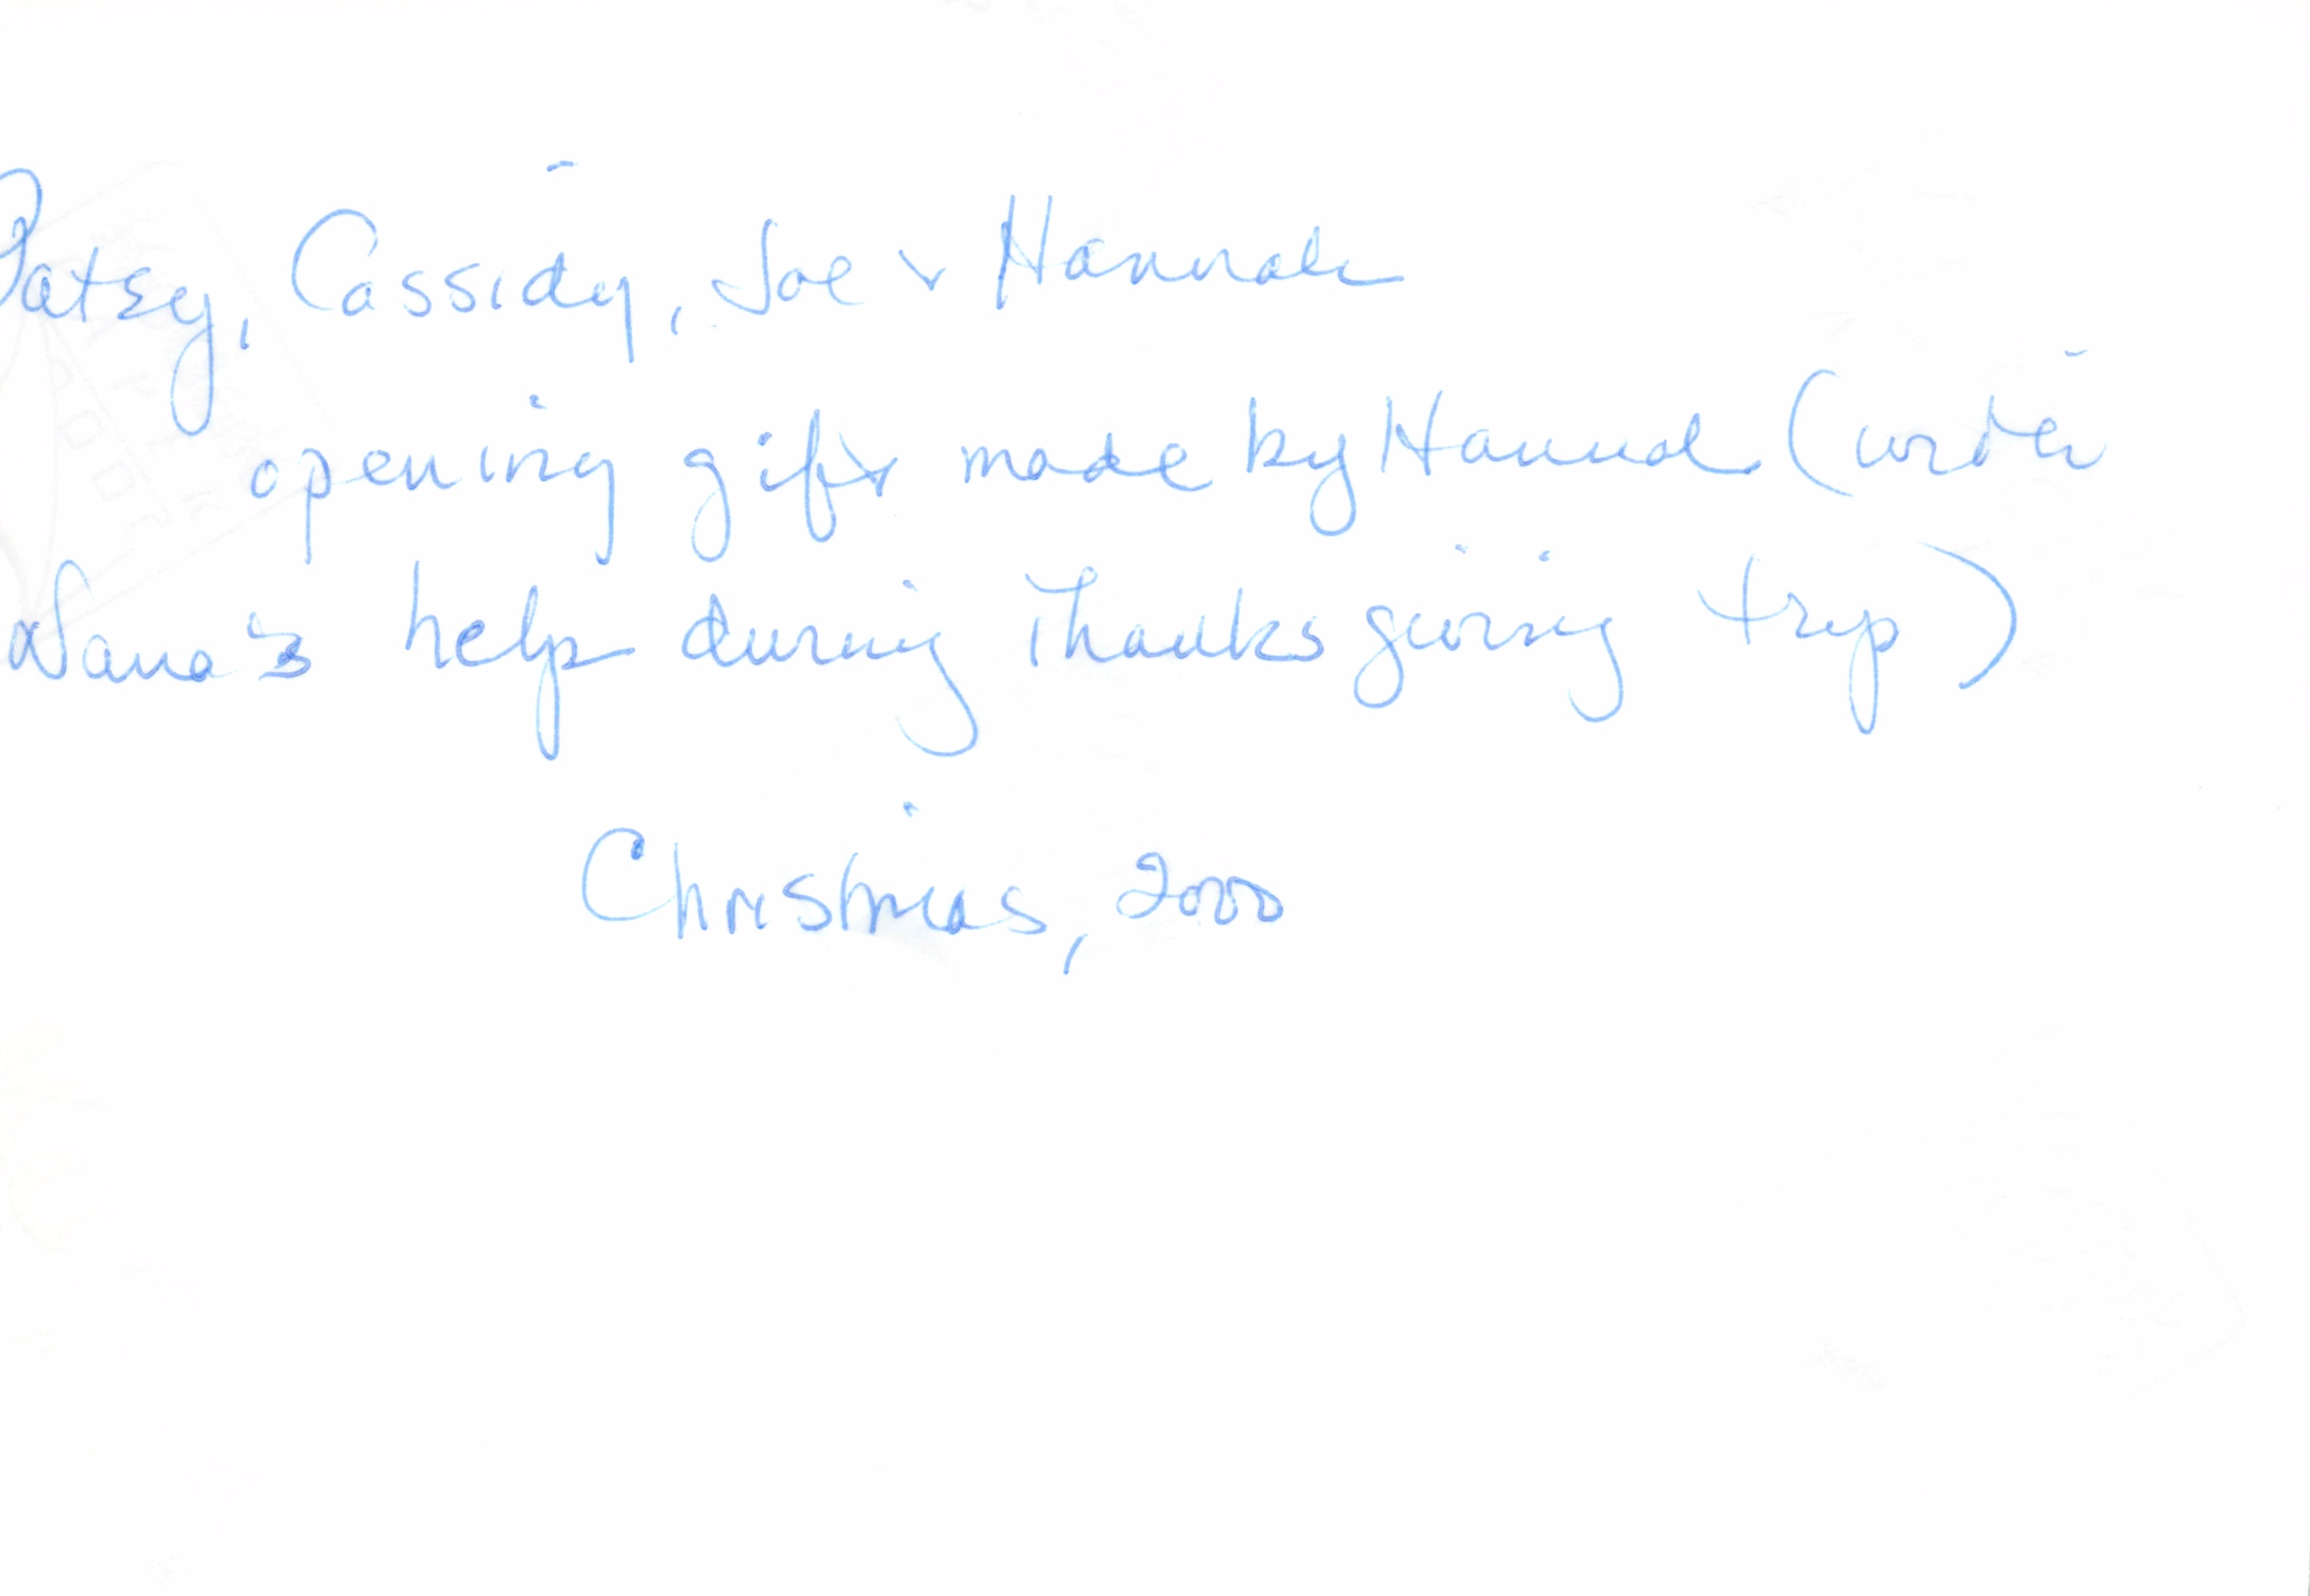 Patsy, Cassidy, Joe & Hannah
opening gifts made by Hannah (with
Nana's help during Thanksgiving trip)
Christmas, 2000